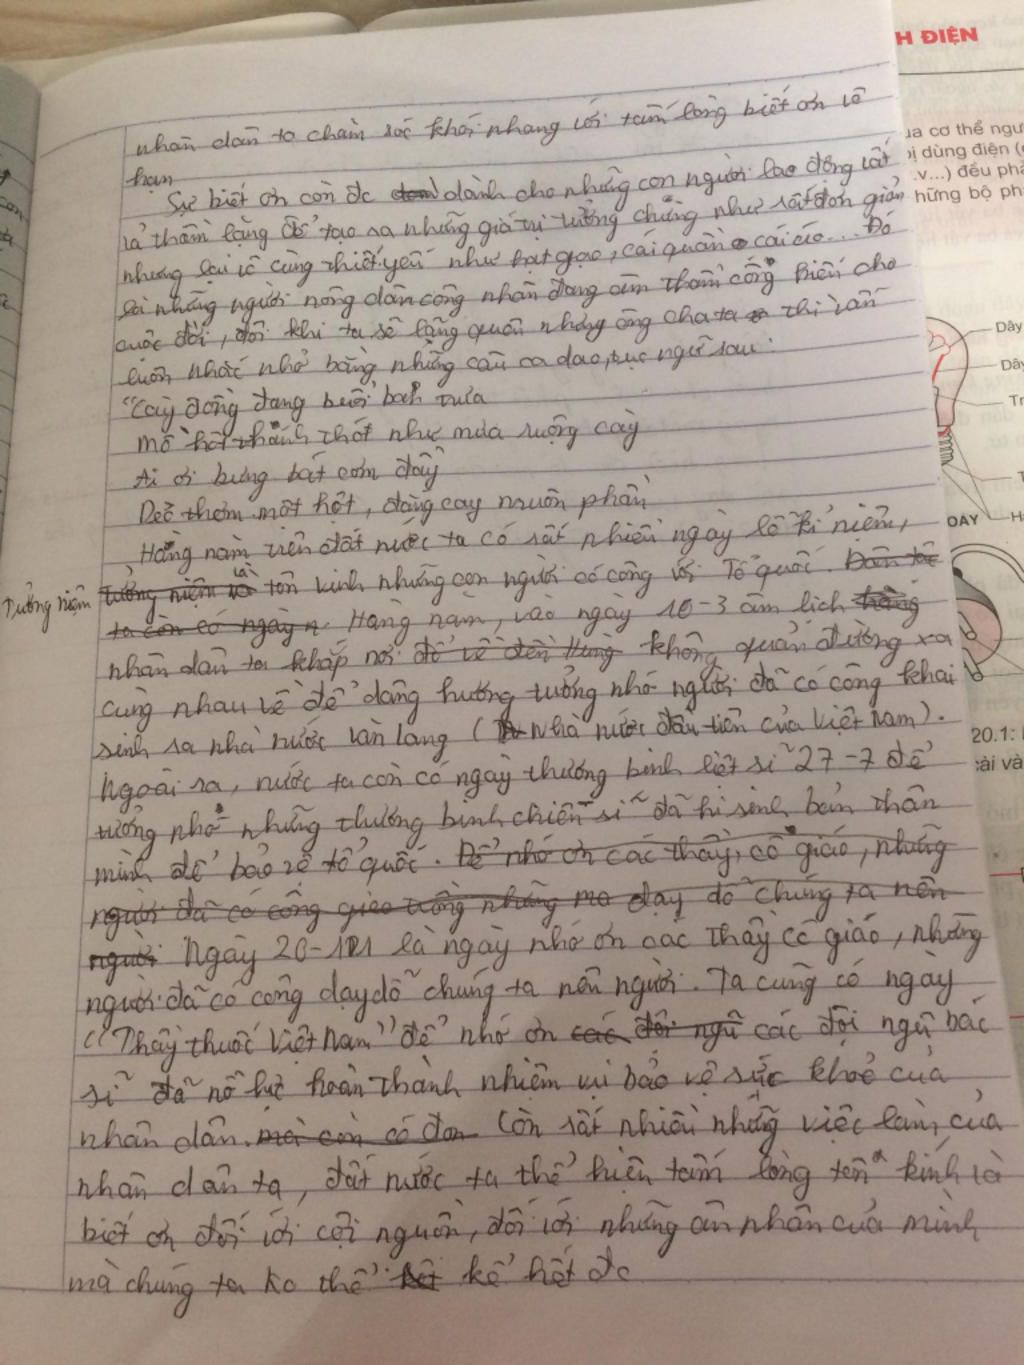 H ĐIỆN
ua cơ thể ngư
bị dùng điện (
.v...) đều phả
hững bộ ph
Dây
Dây
Tr
T
H
ĐÁY
20.1:
cài và
nhân dân ta chăm sóc khói nhang với tấm lòng biết ơn vô
hạn
Sự biết ơn còn đc dành cho những con người lao động rất
là thầm lặng để tạo ra những giá trị tưởng chừng như rất đơn giản
nhưng lại vô cùng thiết yếu như hạt gạo, cái quần cái áo... Đó
là những người nông dân công nhân đang âm thầm cống hiến cho
cuộc đời, đôi khi ta sẽ lãng quên nhưng ông cha ta thì vẫn
luôn nhắc nhở bằng những câu ca dao, tục ngữ sau:
"Cày đồng đang buổi ban trưa
Mồ hôi thánh thót như mưa ruộng cày
Ai ơi bưng bát cơm đầy
Dẻo thơm một hột, đắng cay muôn phần
Hằng năm trên đất nước ta có rất nhiều ngày lễ kỉ niệm,
Tưởng niệm tưởng niệm và là tôn vinh những con người có công với Tổ quốc. Dân tộc
ta còn có ngày Hàng năm, vào ngày 10-3 âm lịch hằng
nhân dân ta khắp nơi đổ về đền Hùng không quản đường xa
cùng nhau về để dâng hương tưởng nhớ người đã có công khai
sinh ra nhà nước Văn Lang (Nhà nước đầu tiên của Việt Nam).
Ngoài ra, nước ta còn có ngày thương binh liệt sĩ 27-7 để
tưởng nhớ những thương binh chiến sĩ đã hi sinh bản thân
mình để bảo vệ tổ quốc. Để nhớ ơn các thầy, cô giáo, những
người đã có công gieo trồng những dạy dỗ chúng ta nên
người Ngày 20-11 là ngày nhớ ơn các thầy cô giáo, những
người đã có công dạy dỗ chúng ta nên người. Ta cũng có ngày
"Thầy thuốc Việt Nam" để nhớ ơn các đội ngũ các đội ngũ bác
sĩ đã nỗ lực hoàn thành nhiệm vụ bảo vệ sức khoẻ của
nhân dân. mà còn có đơn Còn rất nhiều những việc làm của
nhân dân ta, đất nước ta thể hiện tấm lòng tôn kính và
biết ơn đối với cội nguồn, đối với những ân nhân của mình
mà chúng ta ko thể kể hết đc